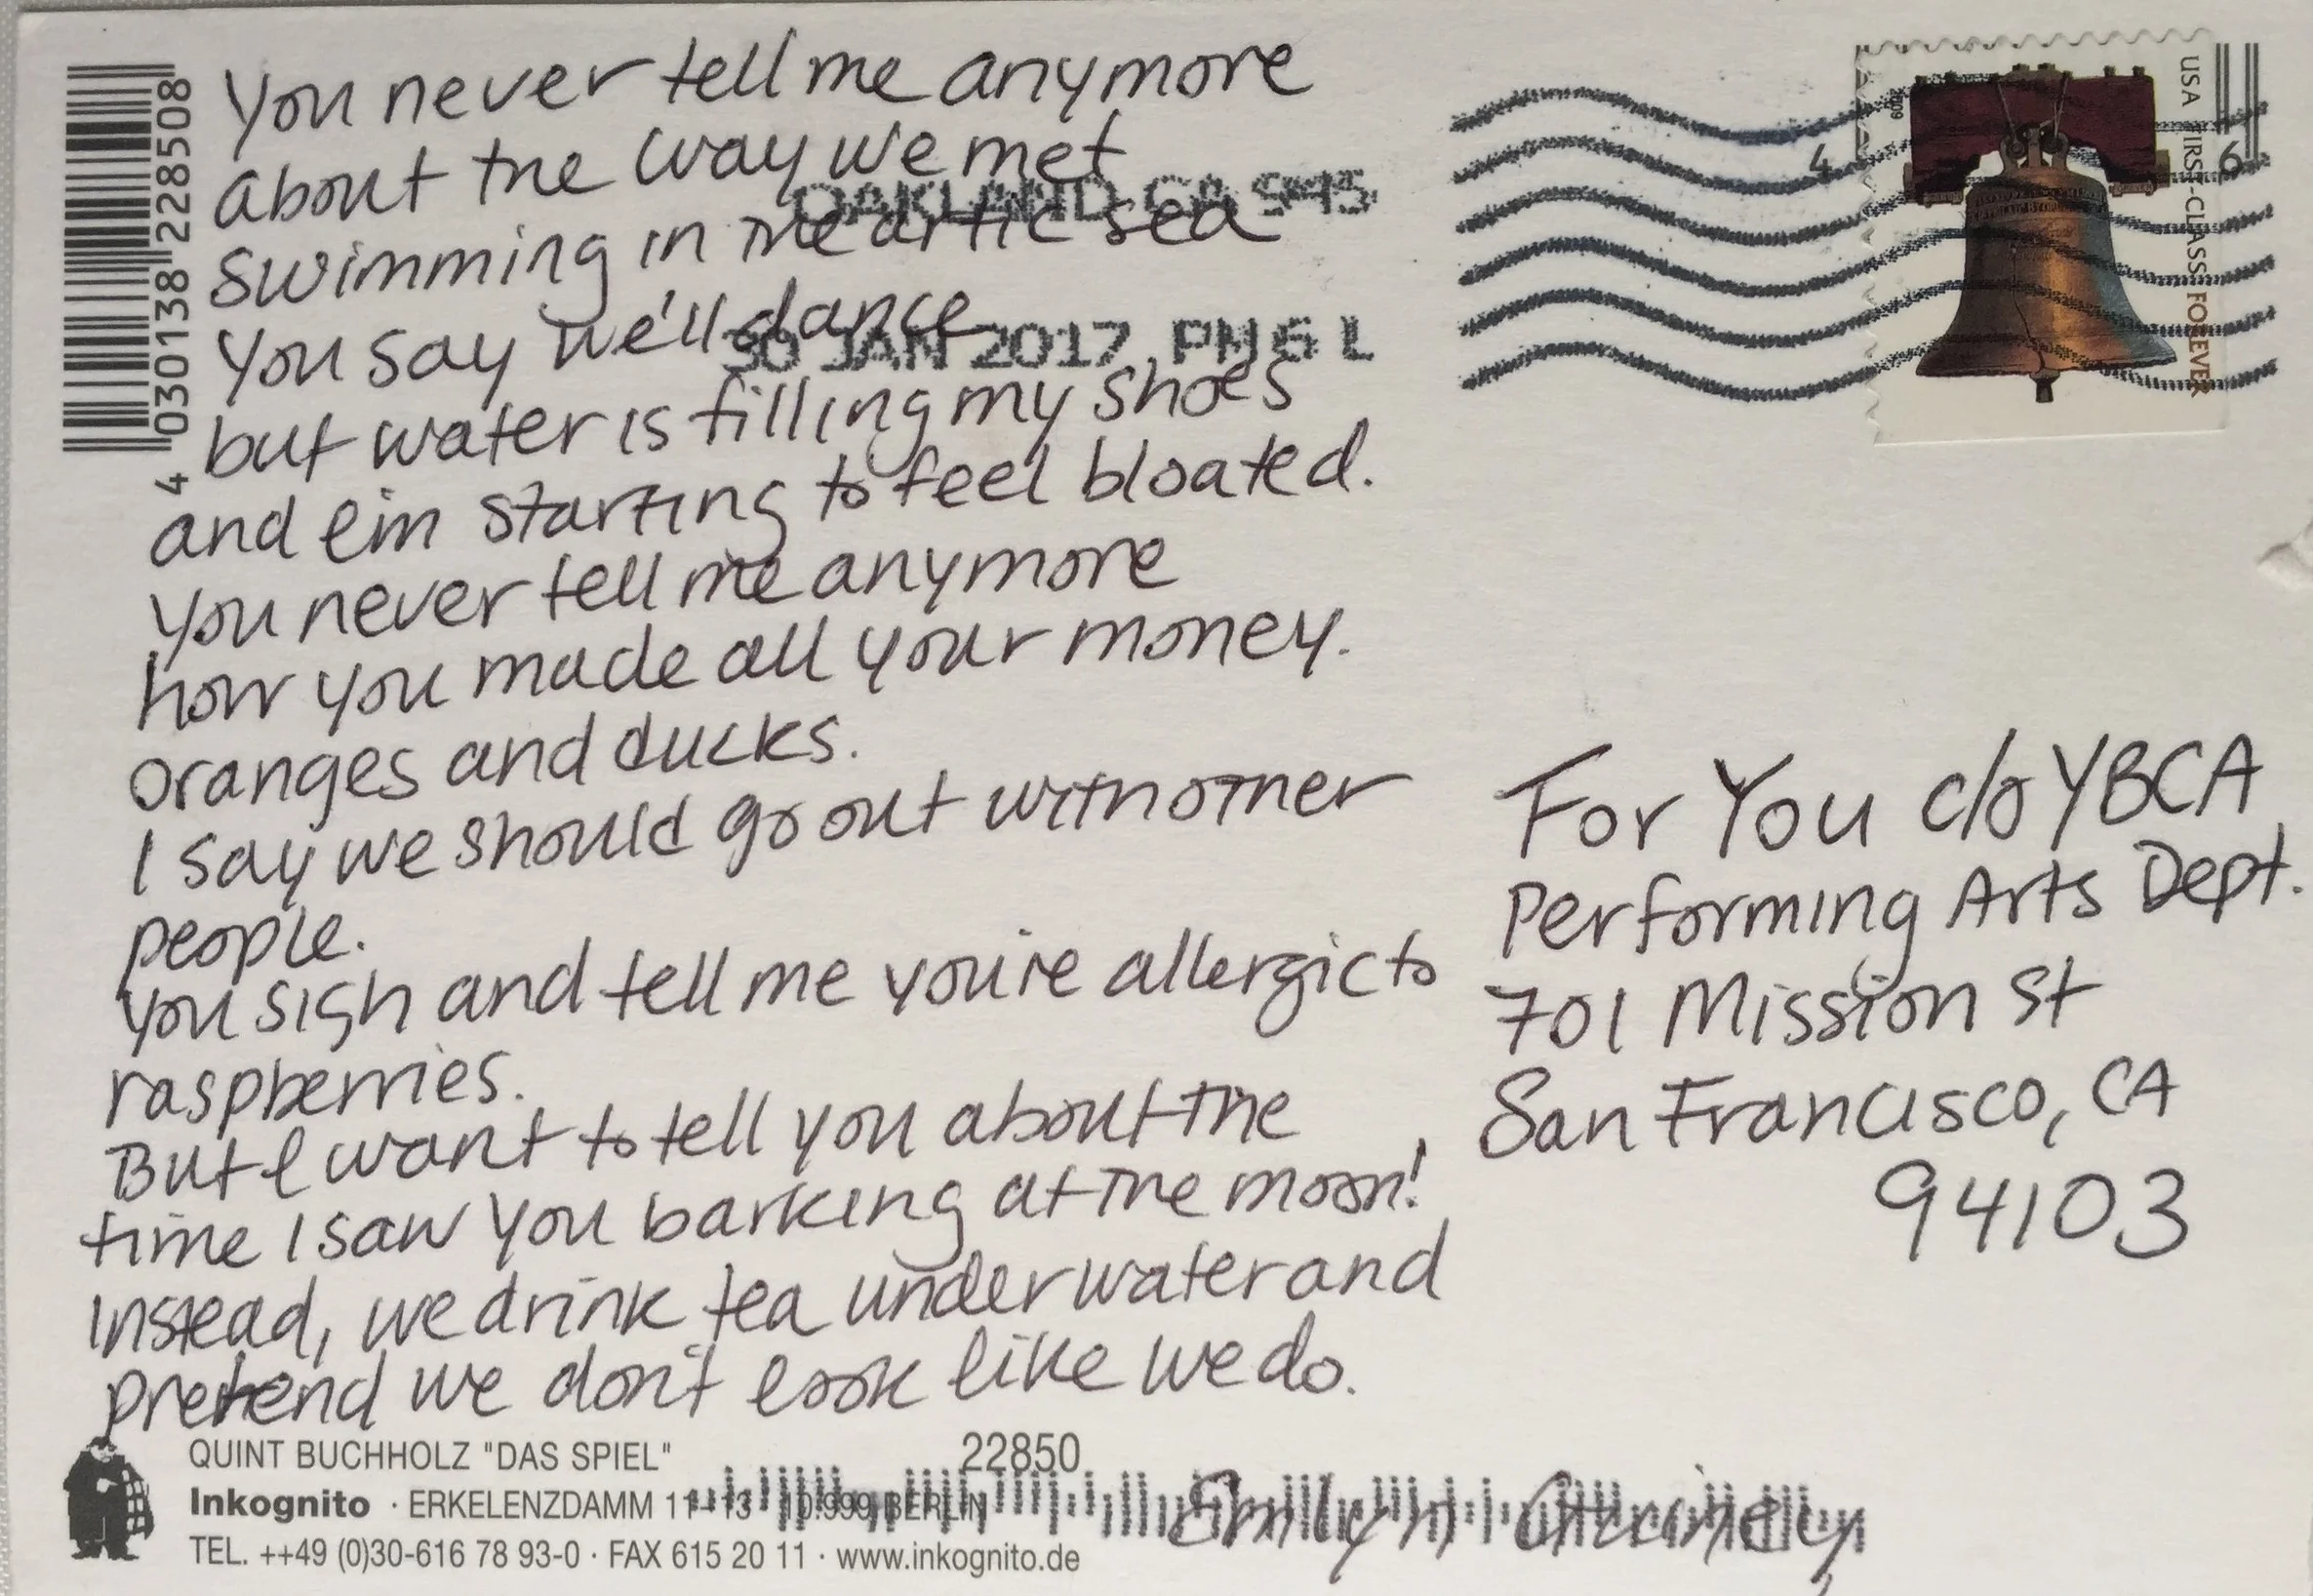 You never tell me anymore
about the way we met
swimming in the artic sea
You say we'll dance
but water is filling my shoes
and i'm starting to feel bloated.
You never tell me anymore
how you made all your money.
oranges and ducks.
I say we should go out with other
people.
You sigh and tell me you're allergic to
raspberries.
But I want to tell you about the
time I saw you barking at the moon!
Instead, we drink tea underwater and
pretend we don't look like we do.
4 030138 228508
OAKLAND CA 945
30 JAN 2017 PM 6 L
USA FIRST-CLASS FOREVER
For You c/o YBCA
Performing Arts Dept.
701 Mission St
San Francisco, CA
94103
QUINT BUCHHOLZ "DAS SPIEL" 22850
Inkognito · ERKELENZDAMM 11-13 · 10.999 BERLIN
TEL. ++49 (0)30-616 78 93-0 · FAX 615 20 11 · www.inkognito.de